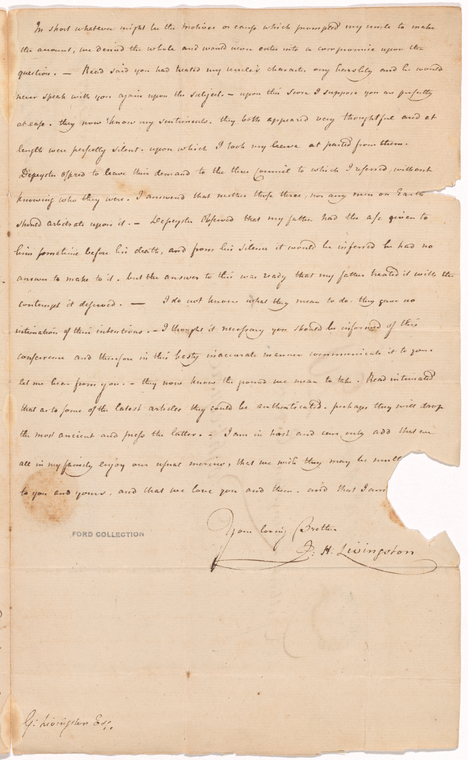 In short whatever might be the motives or cause which prompted my uncle to make
the account, we denied the whole and would never enter into a compromise upon the
question. — Read said you had treated my uncle's character very harshly and he would
never speak with you again upon the subject — upon this score I suppose you are perfectly
at ease. they now know my sentiments. they both appeared very thoughtful and at
length were perfectly silent. upon which I took my leave at parted from them.
Depeyster offered to leave this demand to the three council to which I referred, without
knowing who they were. I answered that neither those three, nor any men on Earth
should arbitrate upon it. — Depeyster observed that my father had the a/c given to
him sometime before his death, and from his silence it would be inferred he had no
answer to make to it. but the answer to this was ready that my father treated it with the
contempt it deserved. — I do not know what they mean to do. they gave no
intimation of their intentions. — I thought it necessary you should be informed of this
conference and therefore in this hasty inaccurate manner communicate it to you.
let me hear from you. — they now know the ground we mean to take. Read intimated
that as to some of the latest articles they could be authenticated. perhaps they will drop
the most ancient and press the latter. — I am in haste and can only add that we
all in my family enjoy our usual mercies, that we wish they may be
to you and yours, and that we love you and them. and that I am
Your loving Brother
J. H. Livingston
FORD COLLECTION
G: Livingston Esq.